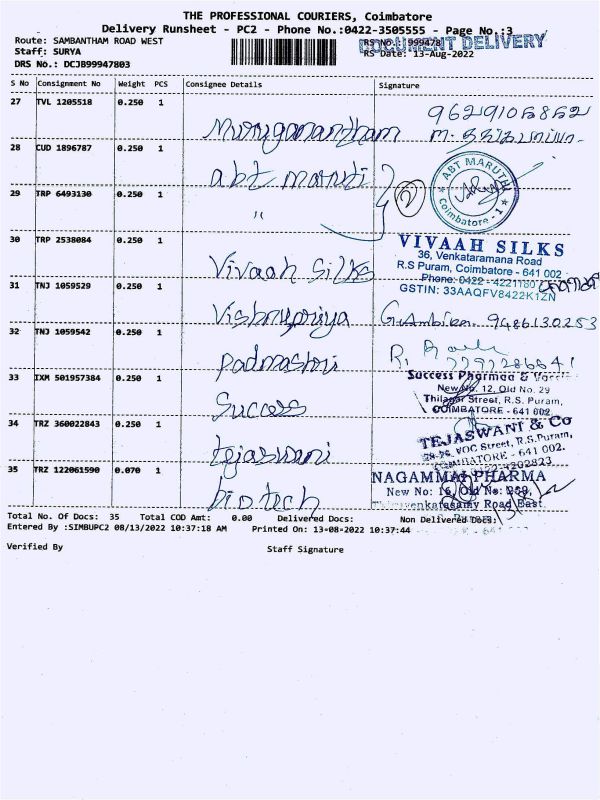 THE PROFESSIONAL COURIERS, Coimbatore
Delivery Runsheet - PC2 - Phone No.:0422-3505555 - Page No.:3
Route: SAMBANTHAM ROAD WEST
RS No.: 999478
DOCUMENT DELIVERY
Staff: SURYA
RS Date: 13-Aug-2022
DRS No.: DCJB99947803
S No Consignment No Weight PCS Consignee Details Signature
27 TVL 1205518 0.250 1
Muruganandham
9629105852
28 CUD 1896787 0.250 1
abt maruti
ABT MARUTHI
Coimbatore - 1
29 TRP 6493130 0.250 1
"
2
30 TRP 2538084 0.250 1
Vivaah Silks
VIVAAH SILKS
36, Venkataramana Road
R.S Puram, Coimbatore - 641 002
Phone: 0422 - 4221180
GSTIN: 33AAQFV8422K1ZN
31 TNJ 1059529 0.250 1
Vishnupriya
G. Ambika. 9486130253
32 TNJ 1059542 0.250 1
Padmashri
R.
33 IXM 501957384 0.250 1
Success
Success Pharmaa &
New No. 12, Old No. 29
Thilagar Street, R.S. Puram,
COIMBATORE - 641 002.
34 TRZ 360022843 0.250 1
tejaswani
TEJASWANI & Co
VOC Street, R.S.Puram,
COIMBATORE - 641 002.
35 TRZ 122061590 0.070 1
bio tech
NAGAMMAI PHARMA
New No: Old No:
Road East
Total No. Of Docs: 35 Total COD Amt: 0.00 Delivered Docs: Non Delivered Docs:
Entered By :SIMBUPC2 08/13/2022 10:37:18 AM Printed On: 13-08-2022 10:37:44
Verified By Staff Signature